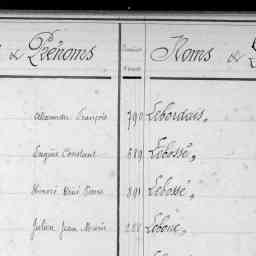 & Prénoms Noms &
Alexandre François 790 Lebordais,
Eugène Constant 689 Lebossé,
Honoré René 891 Lebossé,
Julien Jean Marie 288 Leboue,